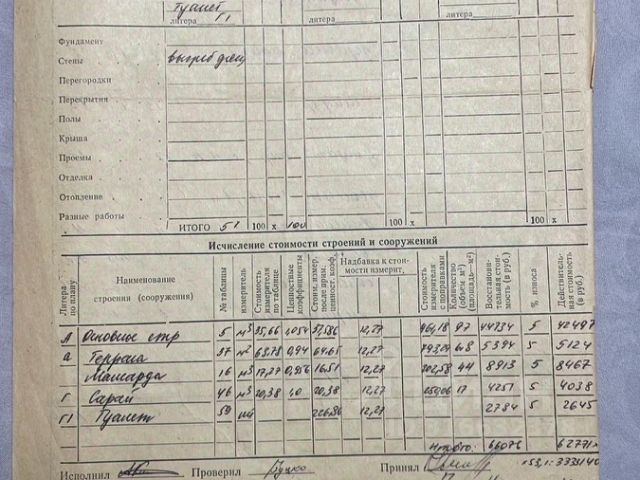 Туалет
литера Г1 литера литера
Фундамент
Стены выгреб
Перегородки
Перекрытия
Полы
Крыша
Проемы
Отделка
Отопление
Разные работы
ИТОГО 100 х 100 100 х 100 х
Исчисление стоимости строений и сооружений
Литера по плану Наименование строения (сооружения) № таблицы измеритель Стоимость измерителя по таблице Ценностные коэффициенты Стоим. измер. после прим. ценност. коэф. Надбавка к стоимости измерит. Стоимость измерителя с поправками Количество (объем м³) (площадь—м²) Восстановительная стоимость (в руб.) % износа Действительная стоимость (в руб.)
А Основное стр 5 м³ 35,66 12,27 97 44734 5 42497
а Терраса 37 м² 0,94 64,65 12,27 6,8 5394 5 5124
Мансарда 16 м³ 16,51 12,27 202,58 44 8913 5 8467
Г Сарай 46 м³ 20,38 1,0 20,38 12,27 17 4251 5 4038
Г1 Туалет 59 шт 2784 5 2645
Итого: 66076 62771
Исполнил Проверил Принял